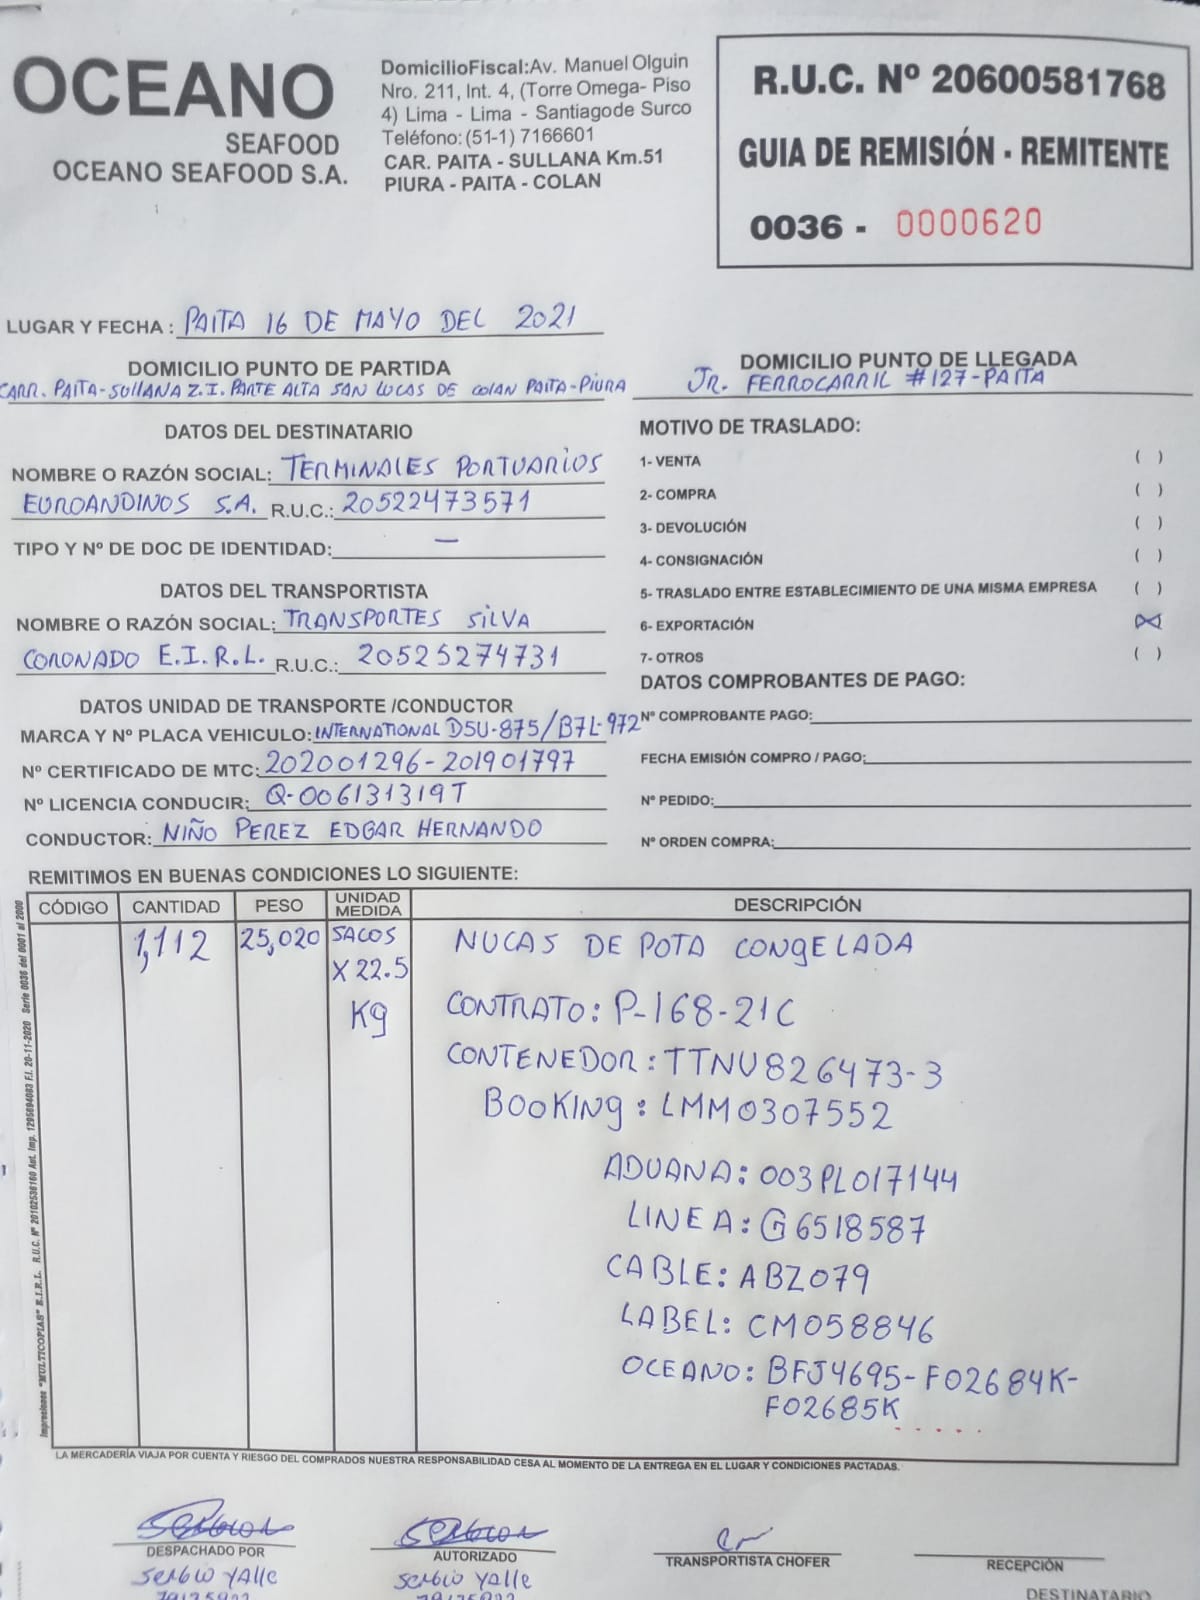 OCEANO
SEAFOOD
OCEANO SEAFOOD S.A.
DomicilioFiscal:Av. Manuel Olguin
Nro. 211, Int. 4, (Torre Omega- Piso
4) Lima - Lima - Santiagode Surco
Teléfono:(51-1) 7166601
CAR. PAITA - SULLANA Km.51
PIURA - PAITA - COLAN
R.U.C. Nº 20600581768
GUIA DE REMISIÓN - REMITENTE
0036 - 0000620
LUGAR Y FECHA : PAITA 16 DE MAYO DEL 2021
DOMICILIO PUNTO DE PARTIDA
CARR. PAITA-SULLANA Z.I. PARTE ALTA SAN LUCAS DE COLAN PAITA-PIURA
DOMICILIO PUNTO DE LLEGADA
JR. FERROCARRIL #127-PAITA
DATOS DEL DESTINATARIO
NOMBRE O RAZÓN SOCIAL: TERMINALES PORTUARIOS
EUROANDINOS S.A. R.U.C.: 20522473571
TIPO Y Nº DE DOC DE IDENTIDAD: —
DATOS DEL TRANSPORTISTA
NOMBRE O RAZÓN SOCIAL: TRANSPORTES SILVA
CORONADO E.I.R.L. R.U.C.: 20525274731
DATOS UNIDAD DE TRANSPORTE /CONDUCTOR
MARCA Y Nº PLACA VEHICULO: INTERNATIONAL D5U-875/B7L-972
Nº CERTIFICADO DE MTC: 202001296-201901797
Nº LICENCIA CONDUCIR: Q-006131319T
CONDUCTOR: NIÑO PEREZ EDGAR HERNANDO
MOTIVO DE TRASLADO:
1- VENTA ( )
2- COMPRA ( )
3- DEVOLUCIÓN ( )
4- CONSIGNACIÓN ( )
5- TRASLADO ENTRE ESTABLECIMIENTO DE UNA MISMA EMPRESA ( )
6- EXPORTACIÓN (X)
7- OTROS ( )
DATOS COMPROBANTES DE PAGO:
Nº COMPROBANTE PAGO:
FECHA EMISIÓN COMPRO / PAGO:
Nº PEDIDO:
Nº ORDEN COMPRA:
REMITIMOS EN BUENAS CONDICIONES LO SIGUIENTE:
CÓDIGO CANTIDAD PESO UNIDAD MEDIDA DESCRIPCIÓN
1,112 25,020 SACOS NUCAS DE POTA CONGELADA
X 22.5
Kg
CONTRATO: P-168-21C
CONTENEDOR: TTNU826473-3
BOOKING: LMM0307552
ADUANA: 003PL017144
LINEA: G6518587
CABLE: ABZ079
LABEL: CM058846
OCEANO: BFJ4695-F02684K-
F02685K
Impresiones "MULTICOPIAS" E.I.R.L. R.U.C. Nº 20102536160 Aut. Imp. 1295694083 F.I. 20-11-2020 Serie 0036 del 0001 al 2000
LA MERCADERÍA VIAJA POR CUENTA Y RIESGO DEL COMPRADOS NUESTRA RESPONSABILIDAD CESA AL MOMENTO DE LA ENTREGA EN EL LUGAR Y CONDICIONES PACTADAS.
DESPACHADO POR
SERGIO YALLE
AUTORIZADO
SERGIO YALLE
TRANSPORTISTA CHOFER
RECEPCIÓN
DESTINATARIO